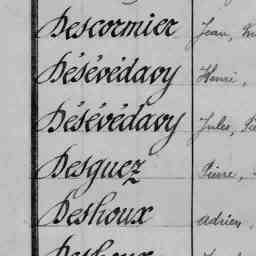 Descormier Jean,
Désévédavy Henri,
Désévédavy Jules,
Desguez Pierre,
Deshoux Adrien,